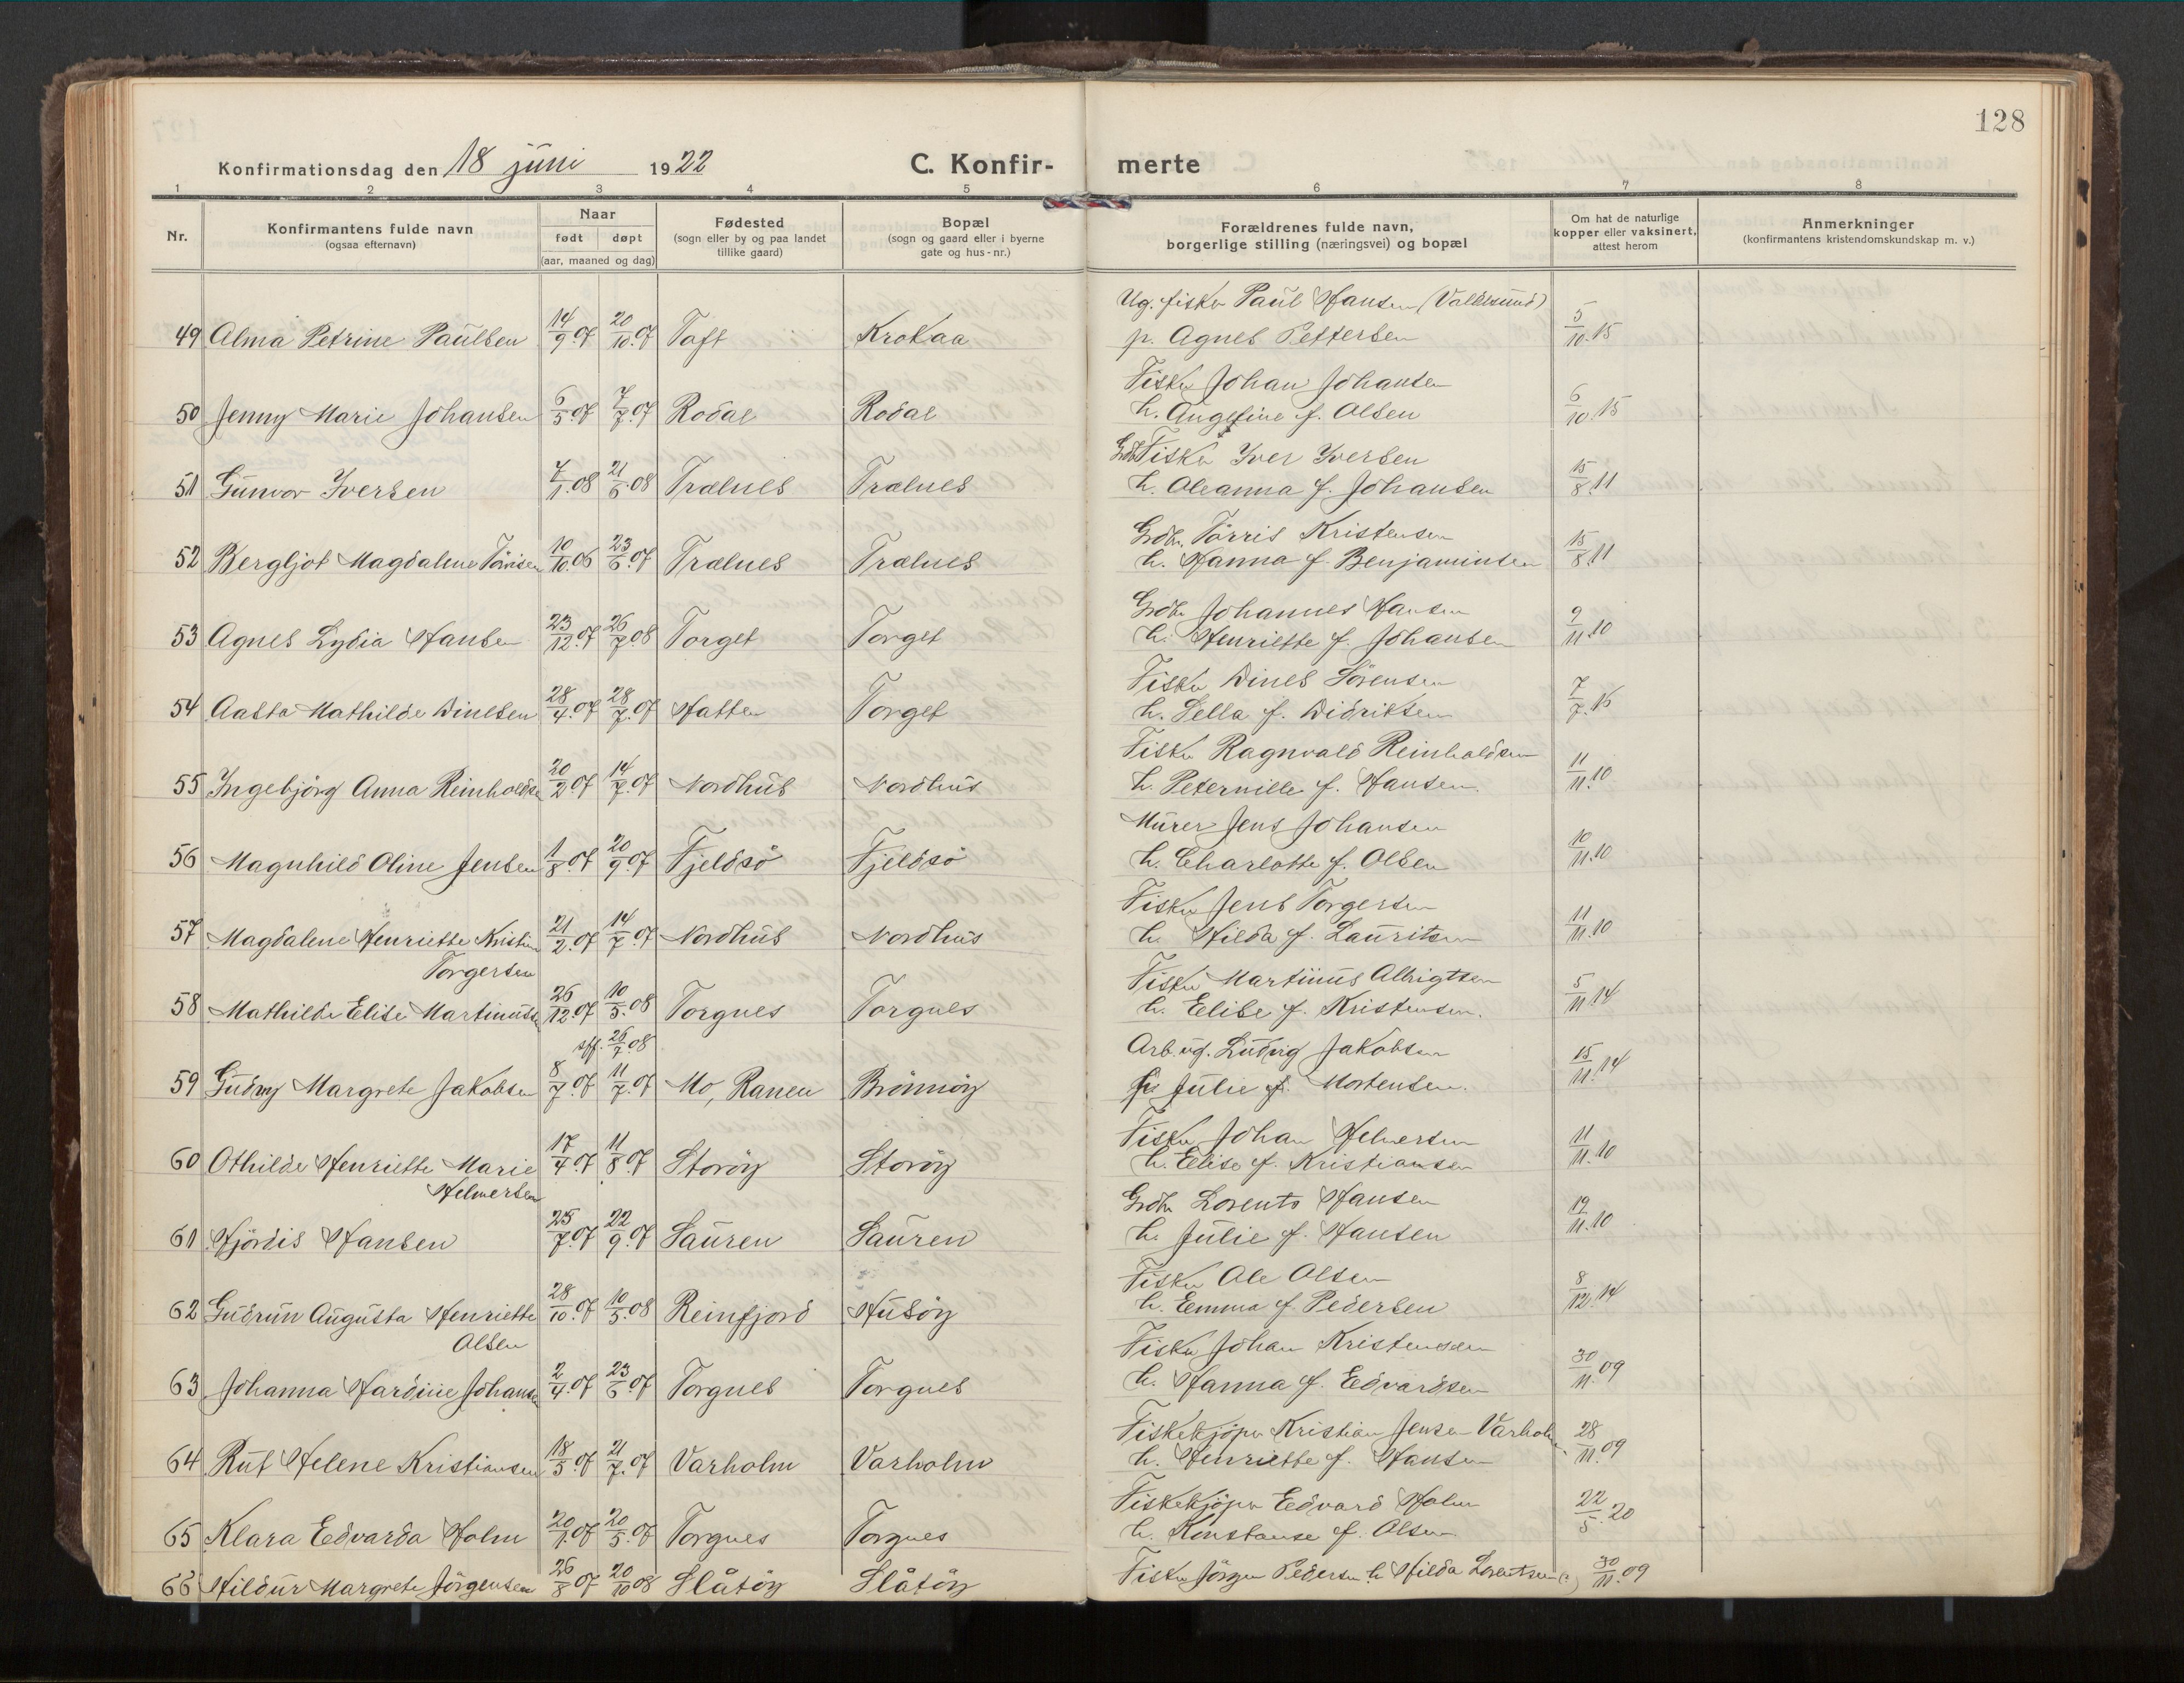 128
Konfirmationsdag den 18 juni 1922 C. Konfir- merte
1 2 3 4 5 6 7 8
Nr.
Konfirmantens fulde navn
(ogsaa efternavn)
Naar
født døpt
(aar, maaned og dag)
Fødested
(sogn eller by og paa landet
tillike gaard)
Bopæl
(sogn og gaard eller i byerne
gate og hus-nr.)
Forældrenes fulde navn,
borgerlige stilling (næringsvei) og bopæl
Om hat de naturlige
kopper eller vaksinert,
attest herom
Anmerkninger
(konfirmantens kristendomskundskap m. v.)
Ug. fisker Paul Hansen (Valdesund)
49 Alma Petrine Paulsen 14/9.07 20/10.07 Toft Krokaa p. Agnes Pettersen 5/10.15
Fisker Johan Johansen
50 Jenny Marie Johansen 6/5.07 7/7.07 Rodal Rodal h. Angefine f. Olsen 6/10.15
Grdbr Fisker Iver Iversen
51 Gunvor Iversen 7/1.08 21/6.08 Trælnes Trælnes h. Oleanna f. Johansen 15/8.11
Grdbr. Tørris Kristensen
52 Bergljot Magdalene Tørrisen 10/10.06 23/6.07 Trælnes Trælnes h. Hanna f. Benjaminsen 15/8.11
Grdbr Johannes Hansen
53 Agnes Lydia Hansen 23/12.07 26/7.08 Torget Torget h. Henriette f. Johansen 9/11.10
Fisker Dines Sörensen
54 Aasta Mathilde Dinesen 28/4.07 28/7.07 Hatten Torget h. Sella f. Didriksen 7/7.16
Fisker Ragnvald Reinholdsen
55 Ingebjörg Anna Reinholdsen 20/2.07 14/7.07 Nordhus Nordhus h. Peternille f. Hansen. 11/11.10
Murer Jens Johansen
56 Magnhild Oline Jensen 1/8.07 20/9.07 Fjeldsö Fjeldsö h. Charlotte f. Olsen 10/11.10
Fisker Jens Torgersen
57 Magdalene Henriette Kristine 21/2.07 14/7.07 Nordhus Nordhus h. Hilda f. Lauritsen 11/11.10
Torgersen
Fisker Martinus Albrigtsen
58 Mathilde Elise Martinussen 26/12.07 10/5.08 Torgnes Torgnes h. Elise f. Kristensen. 5/11.14
stf. 26/7.08
Arb. ug. Ludvig Jakobsen
59 Gudny Margrete Jakobsen 8/7.07 11/7.07 Mo, Ranen Brönnöy p. Julie f. Mortensen. 15/11.14
Fisker Johan Helmersen
60 Othilde Henriette Marie 17/4.07 11/8.07 Storöy Storöy h. Elise f. Kristiansen 11/11.10
Helmersen
Grdbr Lorents Hansen
61 Hjördis Hansen 25/7.07 22/9.07 Sauren Sauren h. Julie f. Hansen 19/11.10
Fisker Ole Olsen
62 Gudrun Augusta Henriette 28/10.07 10/5.08 Reinfjord Husöy h. Emma f. Pedersen 8/12.14
Olsen
Fisker Johan Kristensen
63 Johanna Hardine Johansen 2/4.07 23/6.07 Torgnes Torgnes h. Hanna f. Edvardsen 30/11.09
Fiskekjöper Kristian Jensen Varholm
64 Rut Helene Kristiansen 18/5.07 21/7.07 Varholm Varholm h. Henriette f. Hansen 28/11.09
Fiskekjöper Edvard Holm
65 Klara Edvarda Holm 20/1.07 20/5.07 Torgnes Torgnes h. Konstanse f. Olsen 22/5.20
66 Hildur Margrete Jörgensen 26/8.07 20/10.08 Slåtöy Slåtöy Fisker Jörgen Pedersen h. Hilda Lorentsen 30/11.09